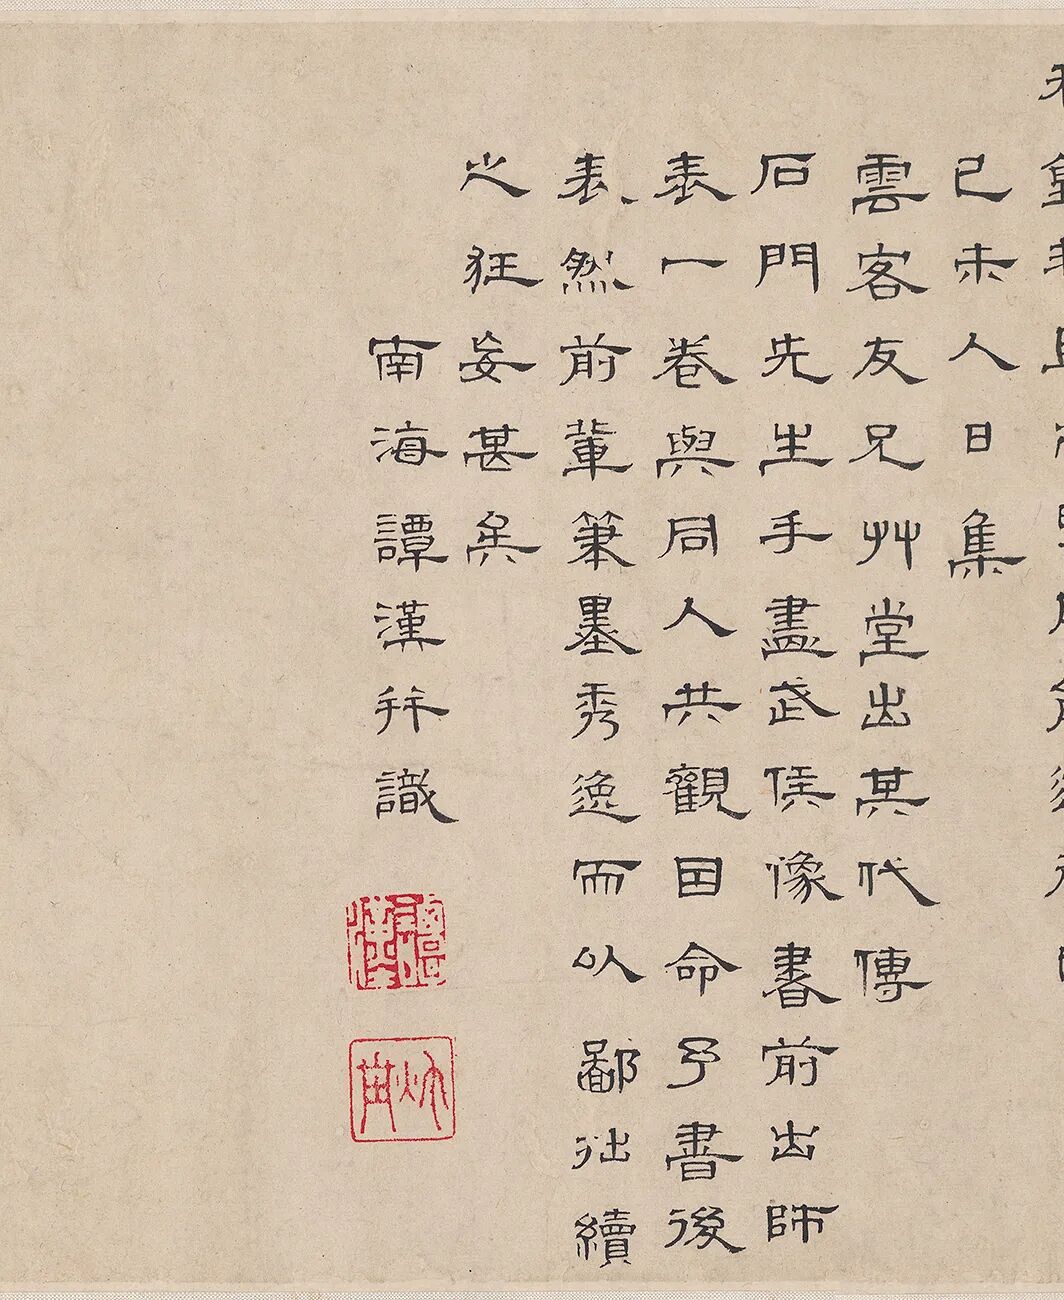 己未人日集
雲客友兄艸堂出其代傳
石門先生手畫武侯像書前出師
表一卷與同人共觀囙命予書後
表、然前輩筆墨秀逸而以鄙拙續
之狂妄甚矣
南海譚漢并識